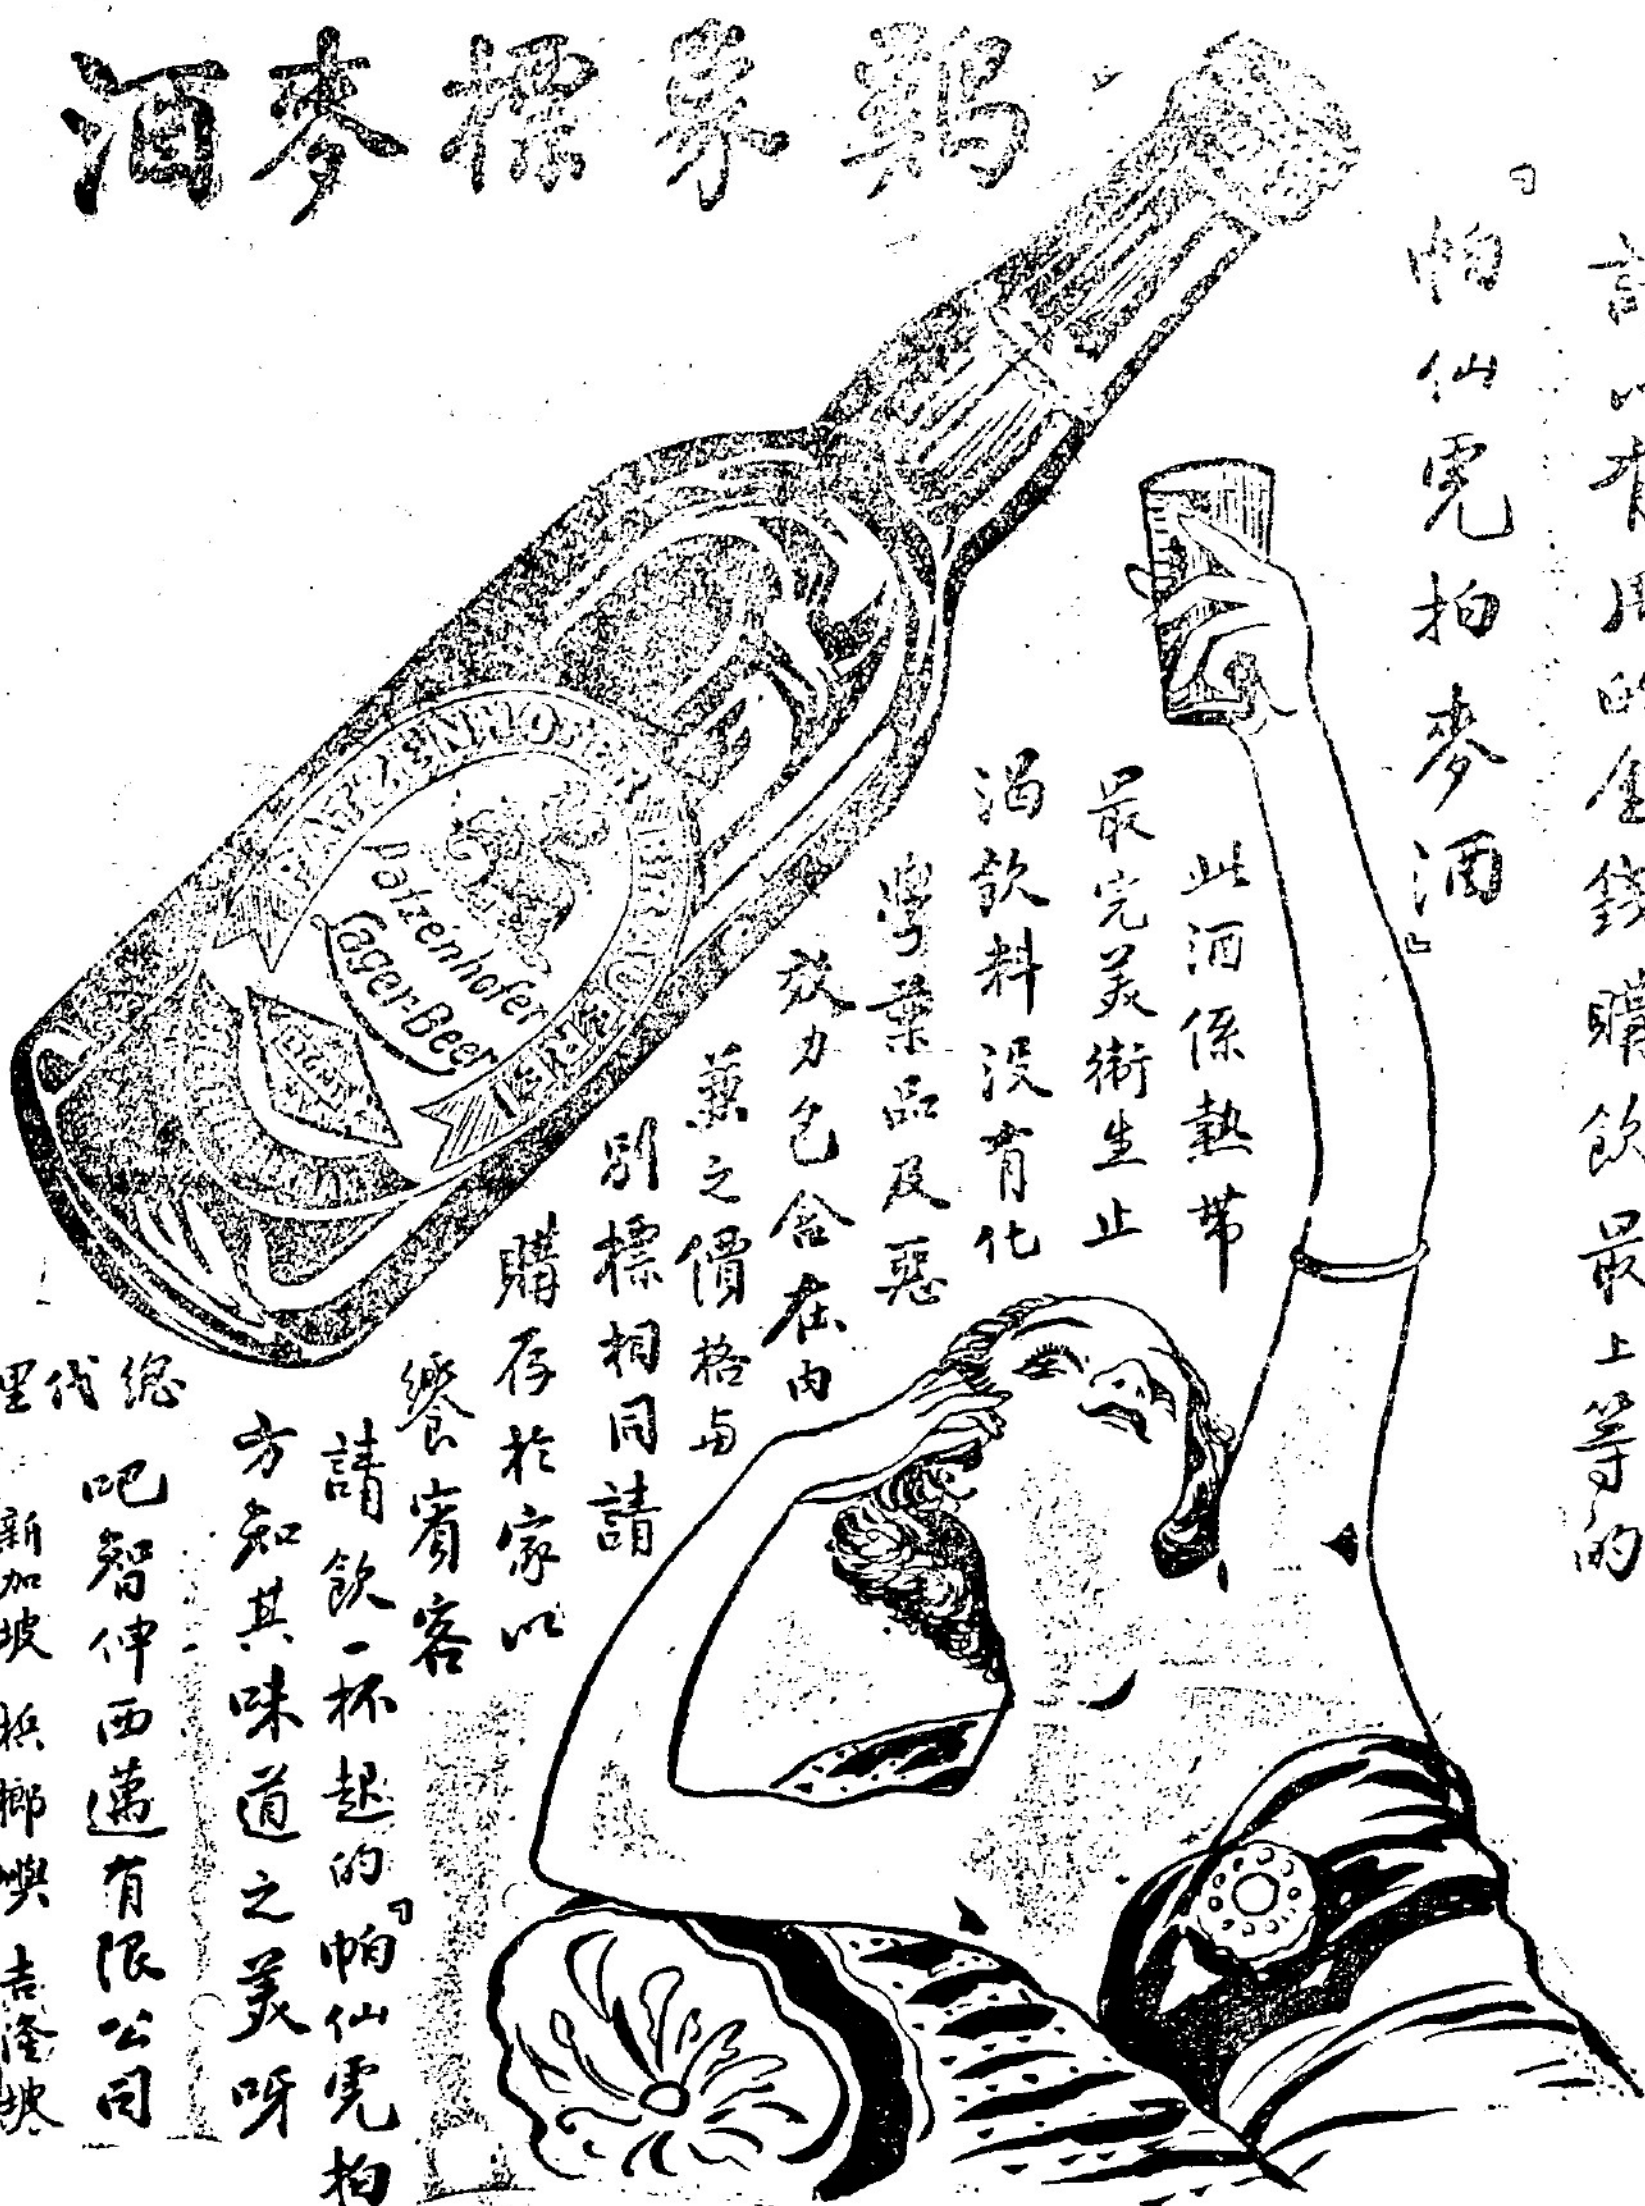 鷄象標麥酒
請以有用的金錢購飲最上等的
『帕仙虎拍麥酒』
此酒係熱帶
最完美衛生止
渴飲料没有化
學藥品及惡
效力包含在內
兼之價格与
別標相同請
購存於家以
饗賓客
請飲一杯起的『帕仙虎拍
方知其味道之美呀
總代理
吧智伸西邁有限公司
新加坡 梹榔嶼 吉隆坡
PATZENHOFER BRAUEREI
Patzenhofer
Lager-Beer
LIGHT